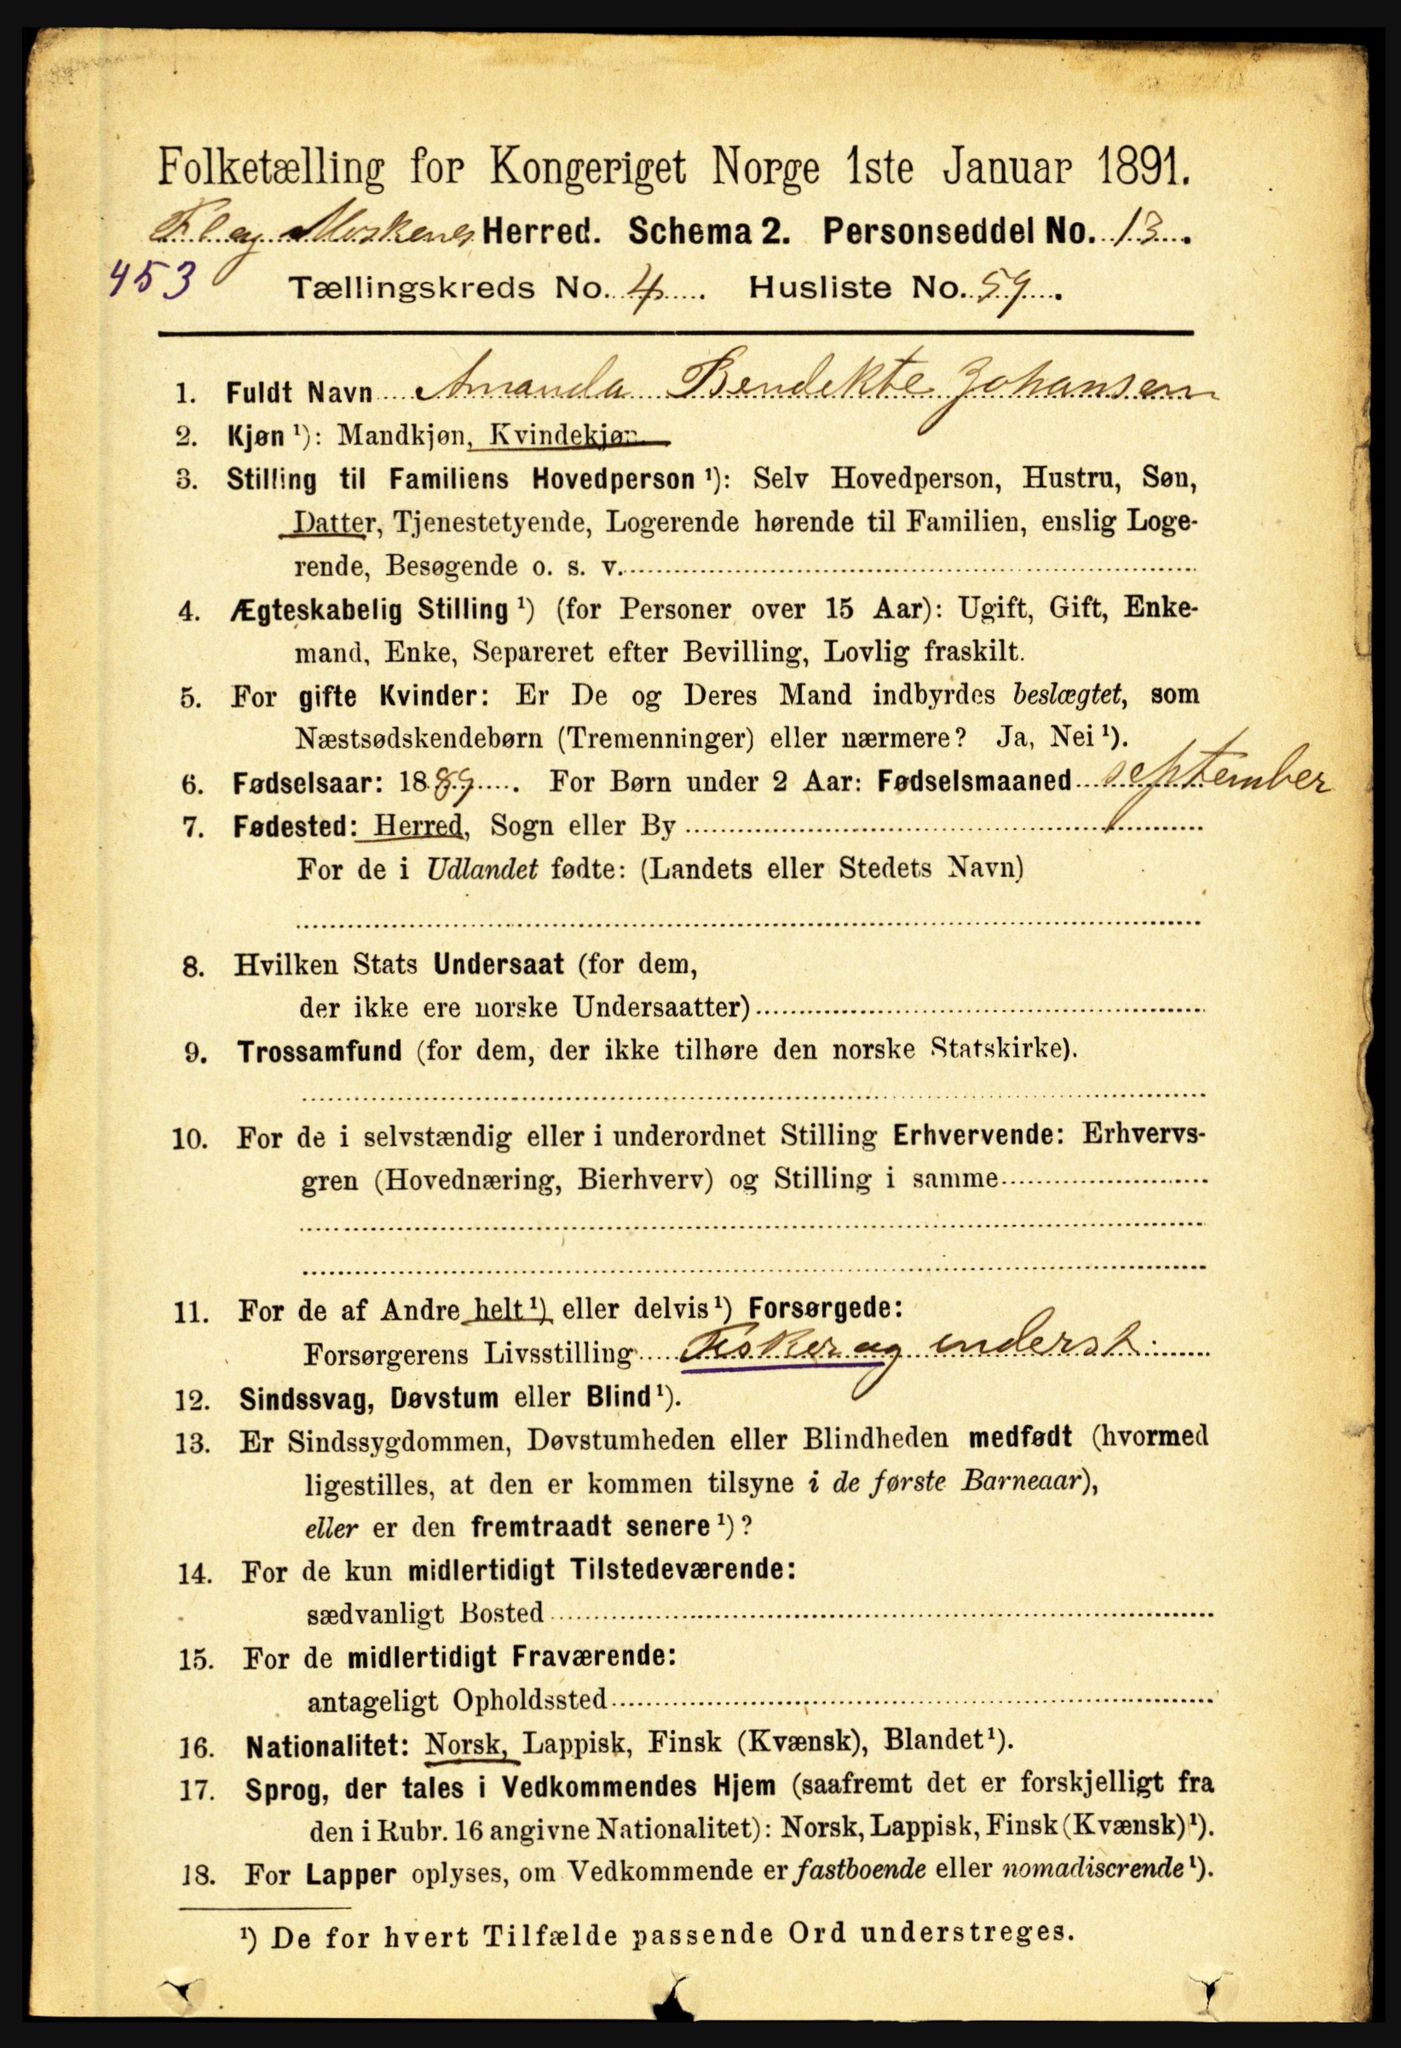 Folketælling for Kongeriget Norge 1ste Januar 1891.
Fl og Moskenes Herred. Schema 2. Personseddel No. 13.
453
Tællingskreds No. 4. Husliste No. 59.
1. Fuldt Navn Amanda Bendikte Johansen
2. Kjøn ¹): Mandkjøn, Kvindekjøn
3. Stilling til Familiens Hovedperson ¹): Selv Hovedperson, Hustru, Søn,
Datter, Tjenestetyende, Logerende hørende til Familien, enslig Loge-
rende, Besøgende o. s. v.
4. Ægteskabelig Stilling ¹) (for Personer over 15 Aar): Ugift, Gift, Enke-
mand, Enke, Separeret efter Bevilling, Lovlig fraskilt.
5. For gifte Kvinder: Er De og Deres Mand indbyrdes beslægtet, som
Næstsødskendebørn (Tremenninger) eller nærmere? Ja, Nei ¹).
6. Fødselsaar: 1889. For Børn under 2 Aar: Fødselsmaaned september
7. Fødested: Herred, Sogn eller By
For de i Udlandet fødte: (Landets eller Stedets Navn)
8. Hvilken Stats Undersaat (for dem,
der ikke ere norske Undersaatter)
9. Trossamfund (for dem, der ikke tilhøre den norske Statskirke).
10. For de i selvstændig eller i underordnet Stilling Erhvervende: Erhvervs-
gren (Hovednæring, Bierhverv) og Stilling i samme
11. For de af Andre helt ¹) eller delvis ¹) Forsørgede:
Forsørgerens Livsstilling Fisker og inderst
12. Sindssvag, Døvstum eller Blind ¹).
13. Er Sindssygdommen, Døvstumheden eller Blindheden medfødt (hvormed
ligestilles, at den er kommen tilsyne i de første Barneaar),
eller er den fremtraadt senere ¹)?
14. For de kun midlertidigt Tilstedeværende:
sædvanligt Bosted
15. For de midlertidigt Fraværende:
antageligt Opholdssted
16. Nationalitet: Norsk, Lappisk, Finsk (Kvænsk), Blandet ¹).
17. Sprog, der tales i Vedkommendes Hjem (saafremt det er forskjelligt fra
den i Rubr. 16 angivne Nationalitet): Norsk, Lappisk, Finsk (Kvænsk) ¹).
18. For Lapper oplyses, om Vedkommende er fastboende eller nomadiserende ¹).
¹) De for hvert Tilfælde passende Ord understreges.